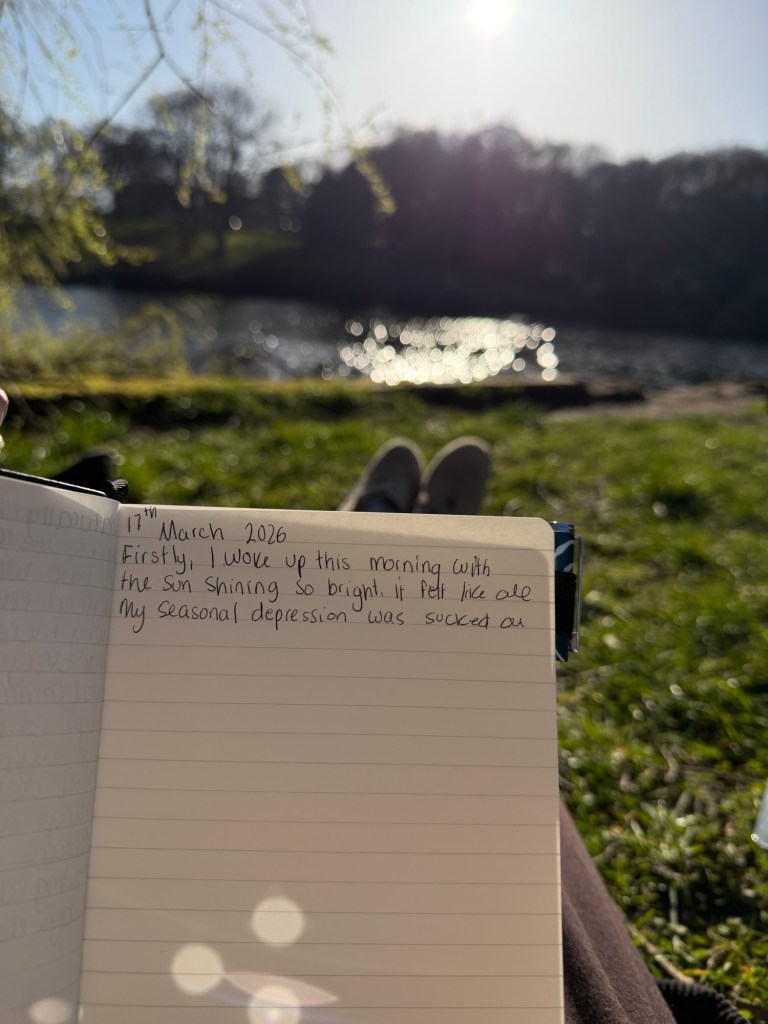 17th March 2026
Firstly, I woke up this morning with
the sun shining so bright, it felt like all
My seasonal depression was sucked ou